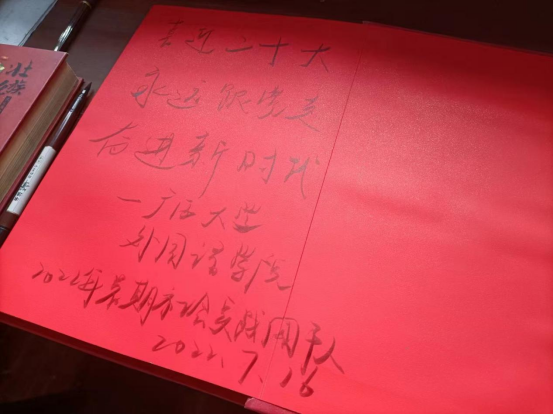 喜迎二十大
永远跟党走
奋进新时代
—广西大学
外国语学院
2022年暑期社会实践团队
2022.7.16
壮族